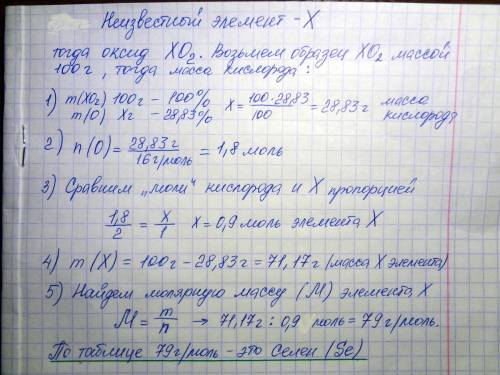 Неизвестный элемент - X
тогда оксид XO₂. Возьмем образец XO₂ массой
100г, тогда масса кислорода:
1) m(XO₂) 100г - 100% X = 100·28,83/100 = 28,83г масса
m(O) Xг - 28,83% кислорода
2) n(O) = 28,83г/16г/моль = 1,8 моль
3) Сравним „моли“ кислорода и X пропорцией
1,8/2 = X/1 X = 0,9 моль элемента X
4) m(X) = 100г - 28,83г = 71,17г (масса X элемента)
5) Найдем молярную массу (M) элемента X
M = m/n → 71,17г : 0,9 моль = 79 г/моль.
По таблице 79г/моль - это Селен (Se)